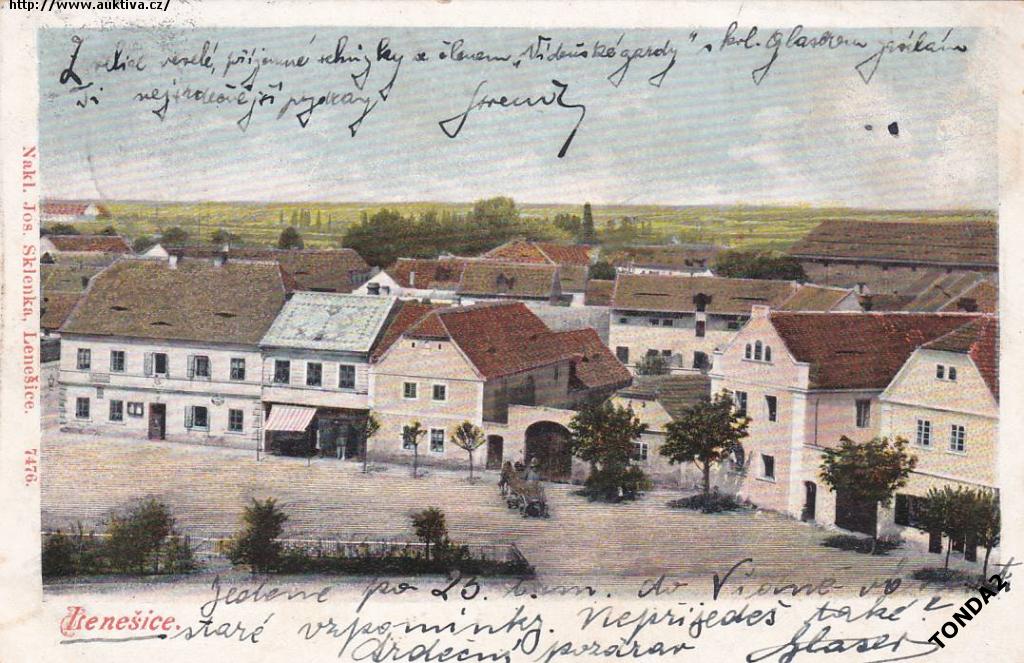 http://www.auktiva.cz/
Z velice veselé, příjemné schůzky se členem „Vídeňské gardy" kol. Glaserem posílám
Ti nejsrdečnější pozdravy
Nakl. Jos. Sklenka, Lenešice. 7476.
Jedeme po 23. t.m. do Vídně
Lenešice.
staré vzpomínky. Nepřijedeš také?
Srdečný pozdrav Glaser
TONDA2